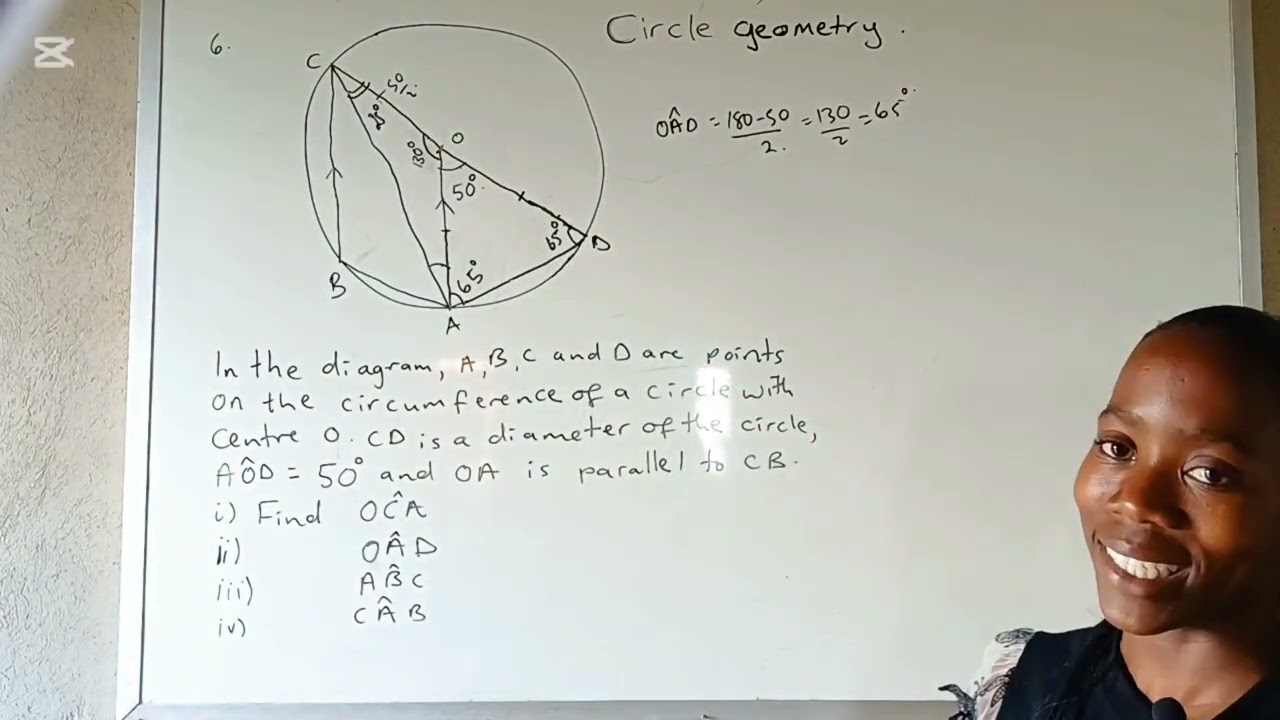 Circle geometry.
6.
C
25°
O
130°
50°
65°
D
65°
B
A
OÂD = 180-50/2. = 130/2 = 65°
In the diagram, A, B, C and D are points
on the circumference of a circle with
Centre O. CD is a diameter of the circle,
AÔD = 50° and OA is parallel to CB.
i) Find OĈA
ii) OÂD
iii) AB̂C
iv) CÂB